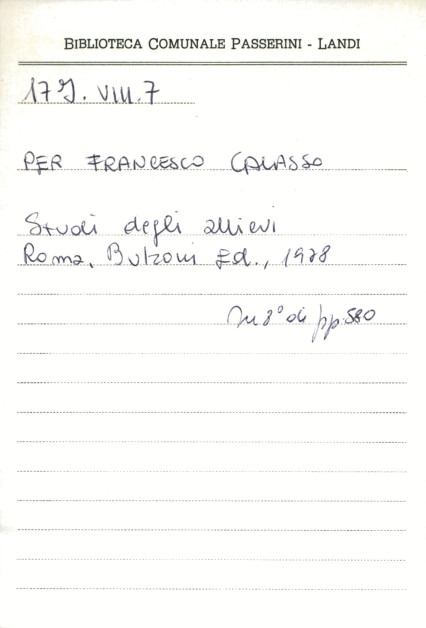 BIBLIOTECA COMUNALE PASSERINI - LANDI
17 J. VIII. 7
PER FRANCESCO CALASSO
Studi degli allievi
Roma, Bulzoni Ed., 1978
In 8° di pp. 580